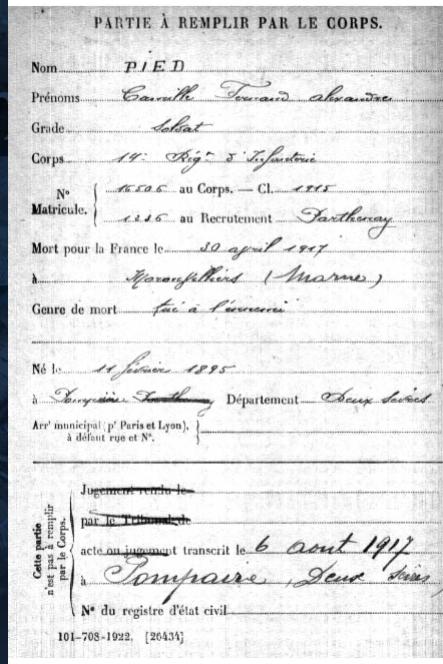 PARTIE À REMPLIR PAR LE CORPS.
Nom PIED
Prénoms Camille Fernand Alexandre
Grade Soldat
Corps 14e Régt d'Infanterie
N° Matricule. 16506 au Corps. — Cl. 1915
1236 au Recrutement Parthenay
Mort pour la France le 30 april 1917
à (Marne)
Genre de mort tué à l'ennemi
Né le 11 février 1895
à Pompaire Parthenay Département Deux Sèvres
Arrt municipal (pr Paris et Lyon),
à défaut rue et N°.
Cette partie
n'est pas à remplir
par le Corps.
Jugement rendu le
par le Tribunal de
acte ou jugement transcrit le 6 aout 1917
à Pompaire, Deux Sèvres
N° du registre d'état civil
101-708-1922. [26434]